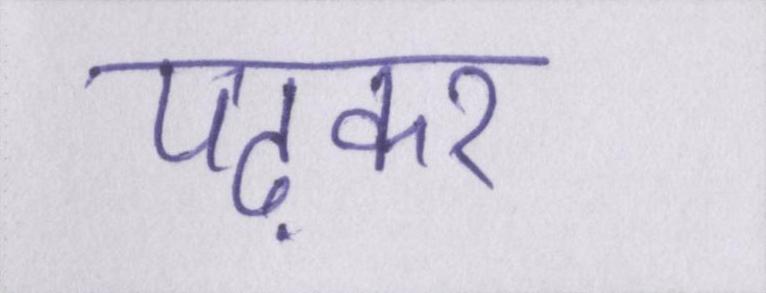 पढ़कर